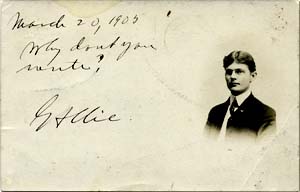 March 20, 1905
Why dont you
write?